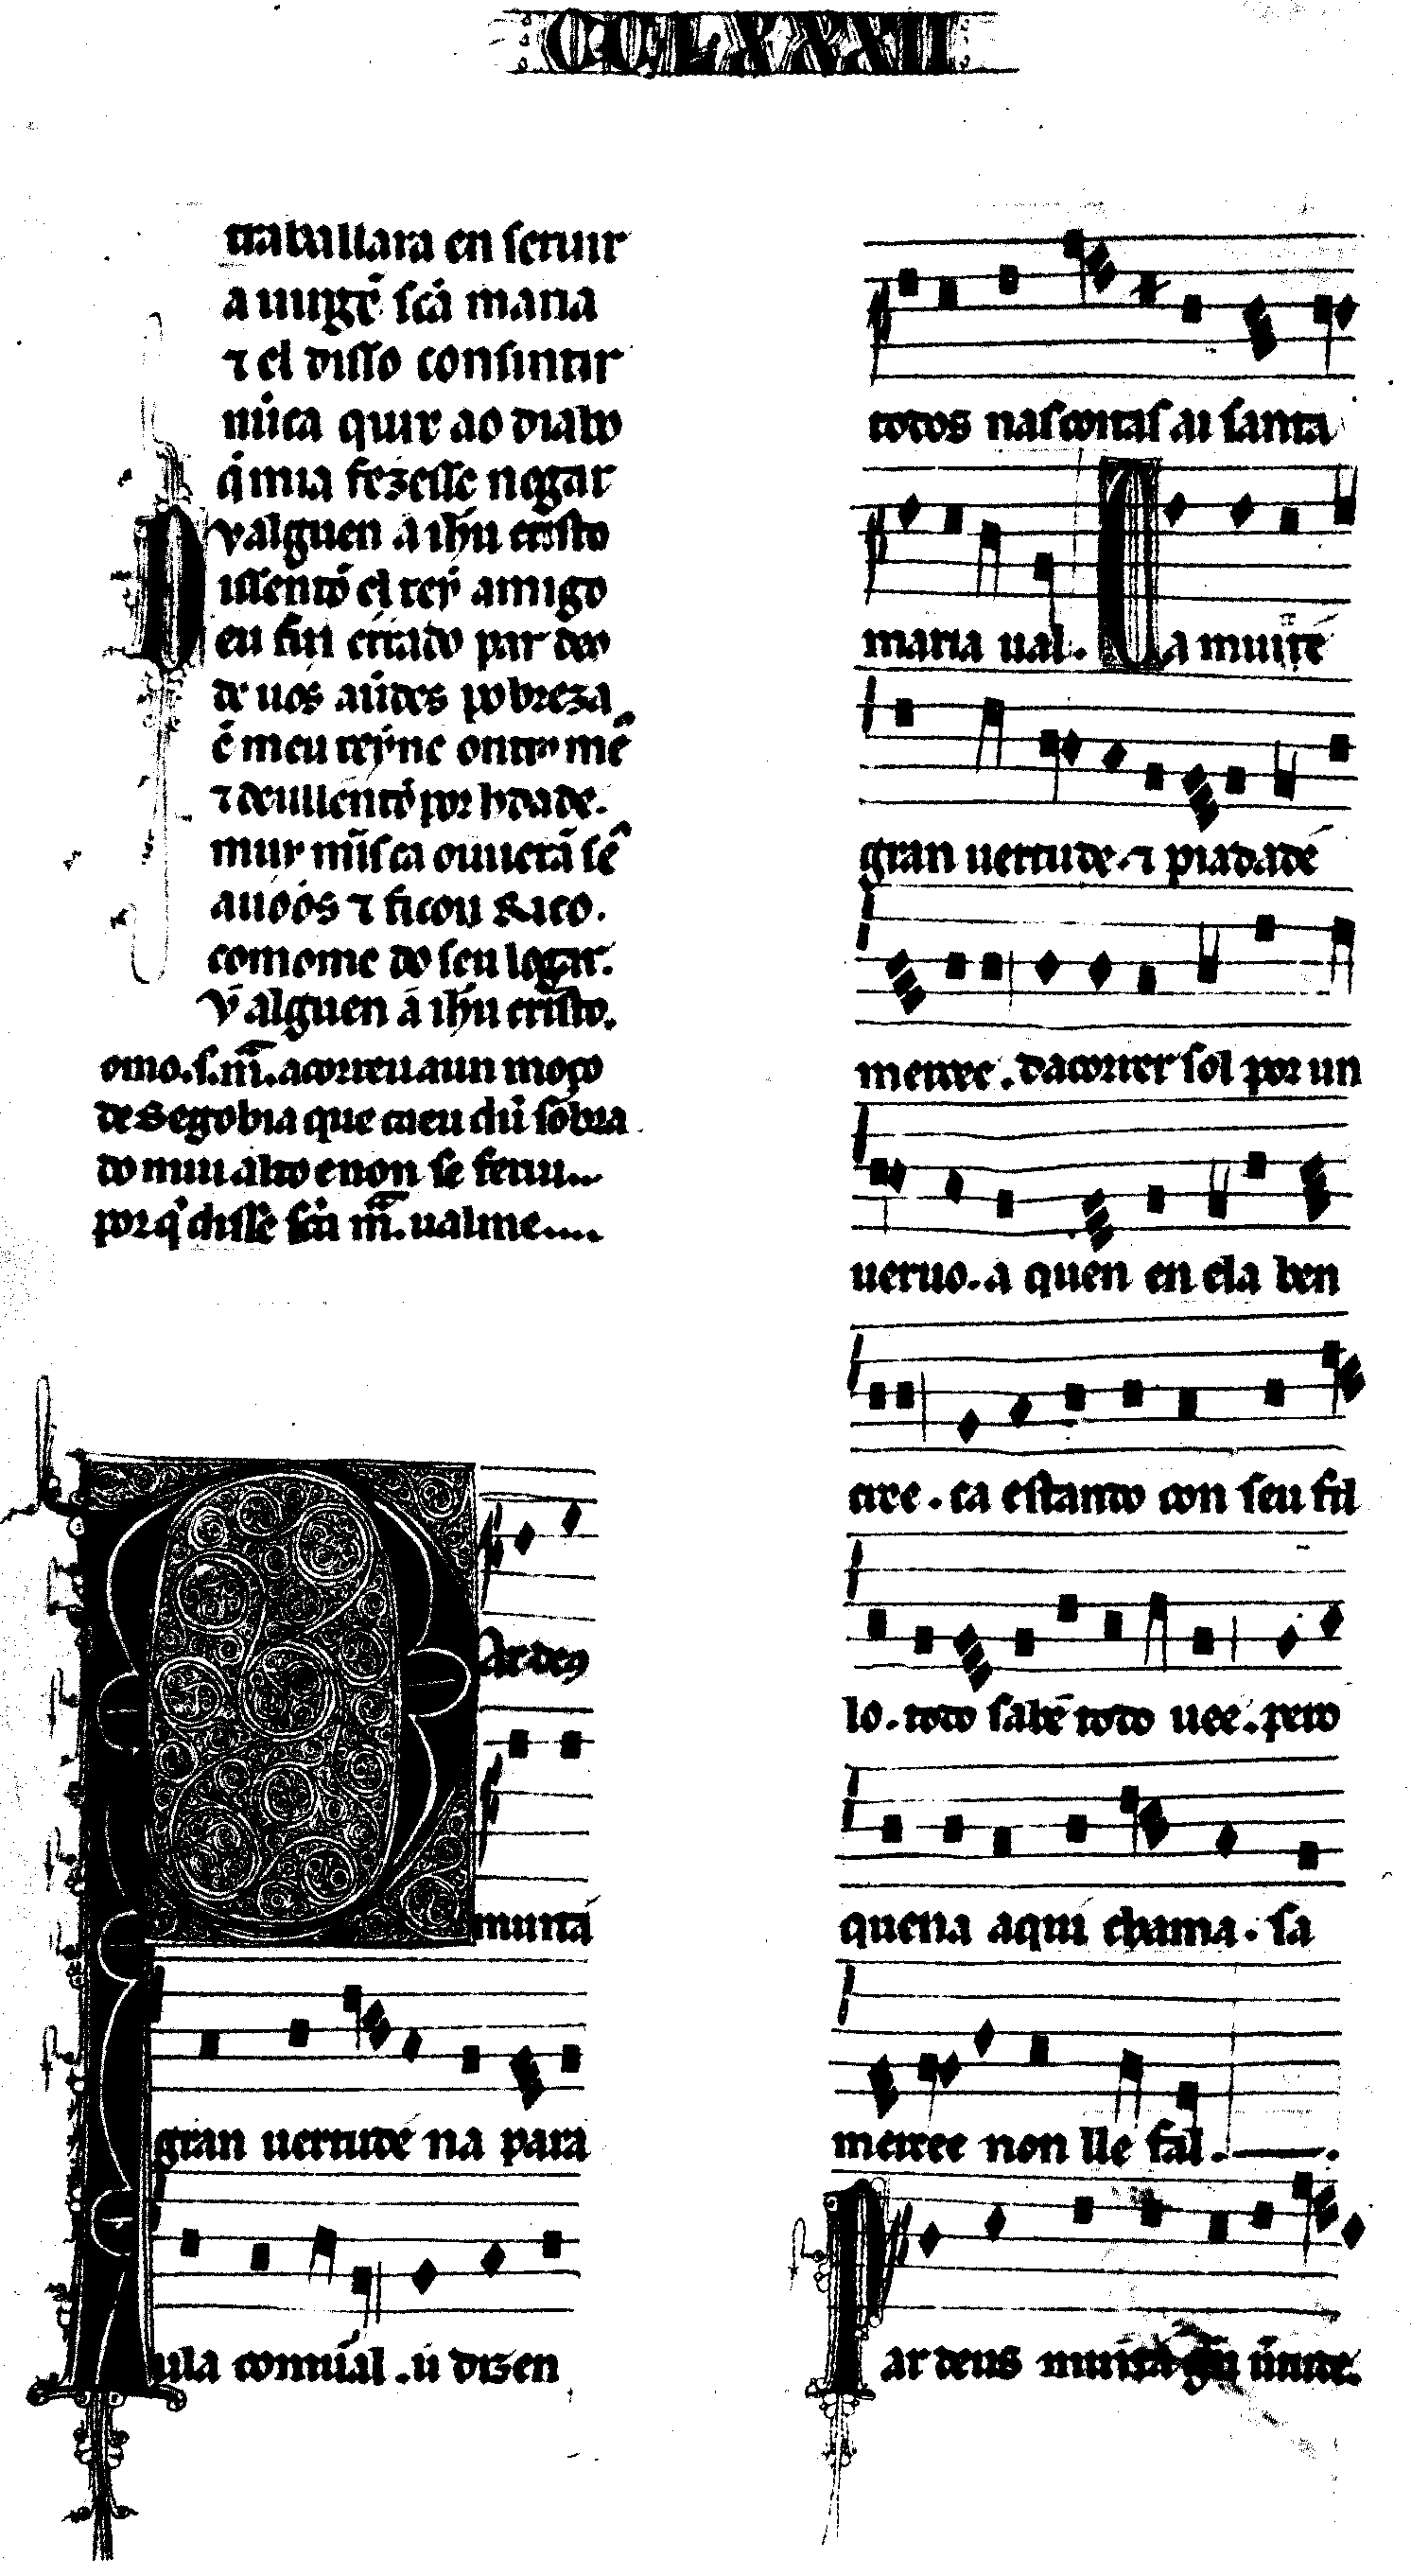 CCLXXXII
traballara en seruir
a uirgẽ sc̃a maria
⁊ el disso consintir
nũca quix ao diabo
q̃ mia fezesse negar
Valguen a ih̃u cristo
Dissentõ el rey amigo
eu fui errado par deo
de uos aũdes pobreza
ẽ meu reyne ontros mẽ
⁊ deulle ntõ por h̃dade.
muy mais ca ouuerã sẽ
auóós ⁊ ficou
comome do seu logar.
Valguen a ih̃u cristo.
omo.s.m̃.acorreu aun moço
de Segobia que caeu dũ sobra
do mui alto e non se feriu...
por q̃ disse sc̃a m̃.ualme....
Par deus
muita
gran uertude na para
ula conuẽal.ú dizen
todos nas contas ai santa
maria ual. Ca muite
gran uertude.⁊ piadade
mercee.dacorrer sol por un
ueruo.a quen en ela ben
cree.ca estando con seu fil
lo.todo sabe todo uee.pero
quena aqui chama.sa
mercee non lle fal.
Par deus muita grã ũtude.